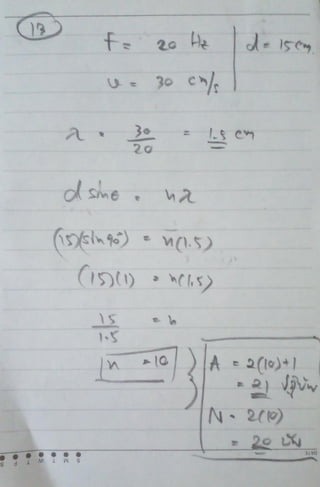 13
f = 20 Hz | d = 15 cm
v = 30 cm/s
λ = 30/20 = 1.5 cm
d sinθ = nλ
(15)(sin 90°) = n(1.5)
(15)(1) = n(1.5)
15/1.5 = n
n = 10
A = 2(10)+1
= 21
N = 2(10)
= 20